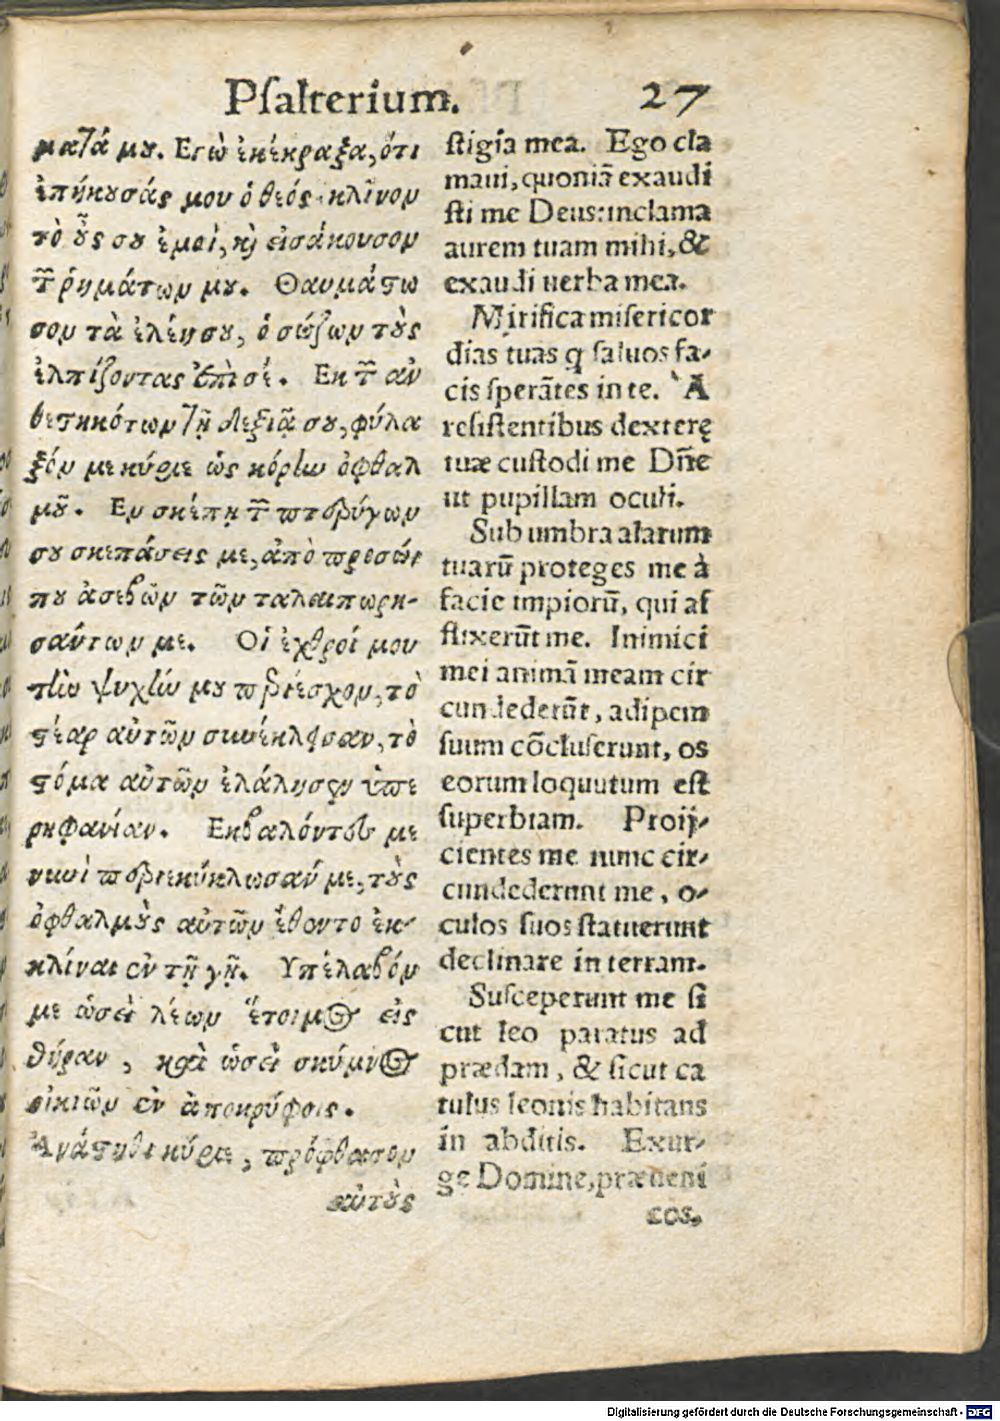 Psalterium. 27
ματά μου. Εγὼ ἐκέκραξα, ὅτι
ἐπήκουσάς μου ὁ θεός· κλῖνον
τὸ οὖς σου ἐμοὶ, καὶ εἰσάκουσον
τῶν ῥημάτων μου. Θαυμάστω
σον τὰ ἐλέη σου, ὁ σώζων τοὺς
ἐλπίζοντας ἐπὶ σέ. Εκ τῶν ἀν
θεστηκότων τῇ δεξιᾷ σου, φύλα
ξόν με κύριε ὡς κόρην ὀφθαλ
μοῦ. Εν σκέπῃ τῶν πτερύγων
σου σκεπάσεις με, ἀπὸ προσώ
που ἀσεβῶν τῶν ταλαιπωρη-
σάντων με. Οἱ ἐχθροί μου
τὴν ψυχήν μου περιέσχον, τὸ
στέαρ αὐτῶν συνέκλεισαν, τὸ
στόμα αὐτῶν ἐλάλησεν ὑπε
ρηφανίαν. Εκβαλόντες με
νυνὶ περιεκύκλωσάν με, τοὺς
ὀφθαλμοὺς αὐτῶν ἔθοντο ἐκ-
κλίναι ἐν τῇ γῇ. Υπέλαβόν
με ὡσεὶ λέων ἕτοιμος εἰς
θήραν, καὶ ὡσεὶ σκύμνος
οἰκιῶν ἐν ἀποκρύφοις.
Ἀνάστηθι κύριε, πρόφθασον
αὐτοὺς
stigia mea. Ego cla
maui, quoniã exaudi
sti me Deus: inclama
aurem tuam mihi, &
exaudi uerba mea.
Mirifica misericor
dias tuas q saluos fa-
cis sperãtes in te. A
resistentibus dexterę
tuæ custodi me Dñe
ut pupillam oculi.
Sub umbra alarum
tuarũ proteges me à
facie impiorũ, qui af
flixerũt me. Inimici
mei animã meam cir
cundederũt, adipem
suum cõcluserunt, os
eorum loquutum est
superbiam. Proij-
cientes me nunc cir-
cundederunt me, o-
culos suos statuerunt
declinare in terram.
Susceperunt me si
cut leo paratus ad
prædam, & sicut ca
tulus leonis habitans
in abditis. Exur-
ge Domine, præueni
eos,
Digitalisierung gefördert durch die Deutsche Forschungsgemeinschaft - DFG